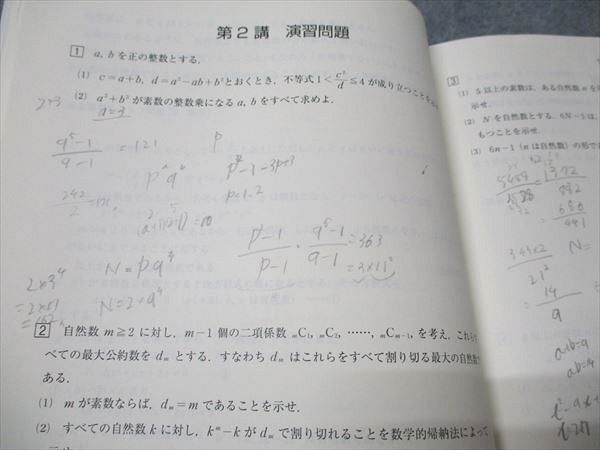 第2講 演習問題
1 a, b を正の整数とする.
(1) c=a+b, d=a²-ab+b² とおくとき, 不等式 1<c²/d≦4 が成り立つことを
(2) a³+b³ が素数の整数乗になる a, b をすべて求めよ.
a=3
q⁵-1/q-1 =121
p
242/2 =121
N=pq⁴
N=2×q⁴
2×3⁴
=2×81
=162
p²-1/p-1 · q⁵-1/q-1 =363
=3×11²
2 自然数 m≧2 に対し, m-1 個の二項係数 ₘC₁, ₘC₂, ……, ₘCₘ₋₁, を考え, これら
べての最大公約数を dₘ とする. すなわち dₘ はこれらをすべて割り切る最大の自然数
ある.
(1) m が素数ならば, dₘ=m であることを示せ.
(2) すべての自然数 k に対し, kᵐ-k が dₘ で割り切れることを数学的帰納法によって
3
(1) 5以上の素数は, ある自然数 n を
示せ.
(2) N を自然数とする. 6N-1 は,
もつことを示せ.
(3) 6n-1 (n は自然数) の形で
343×2/21²
N=
14/9
a+b=9